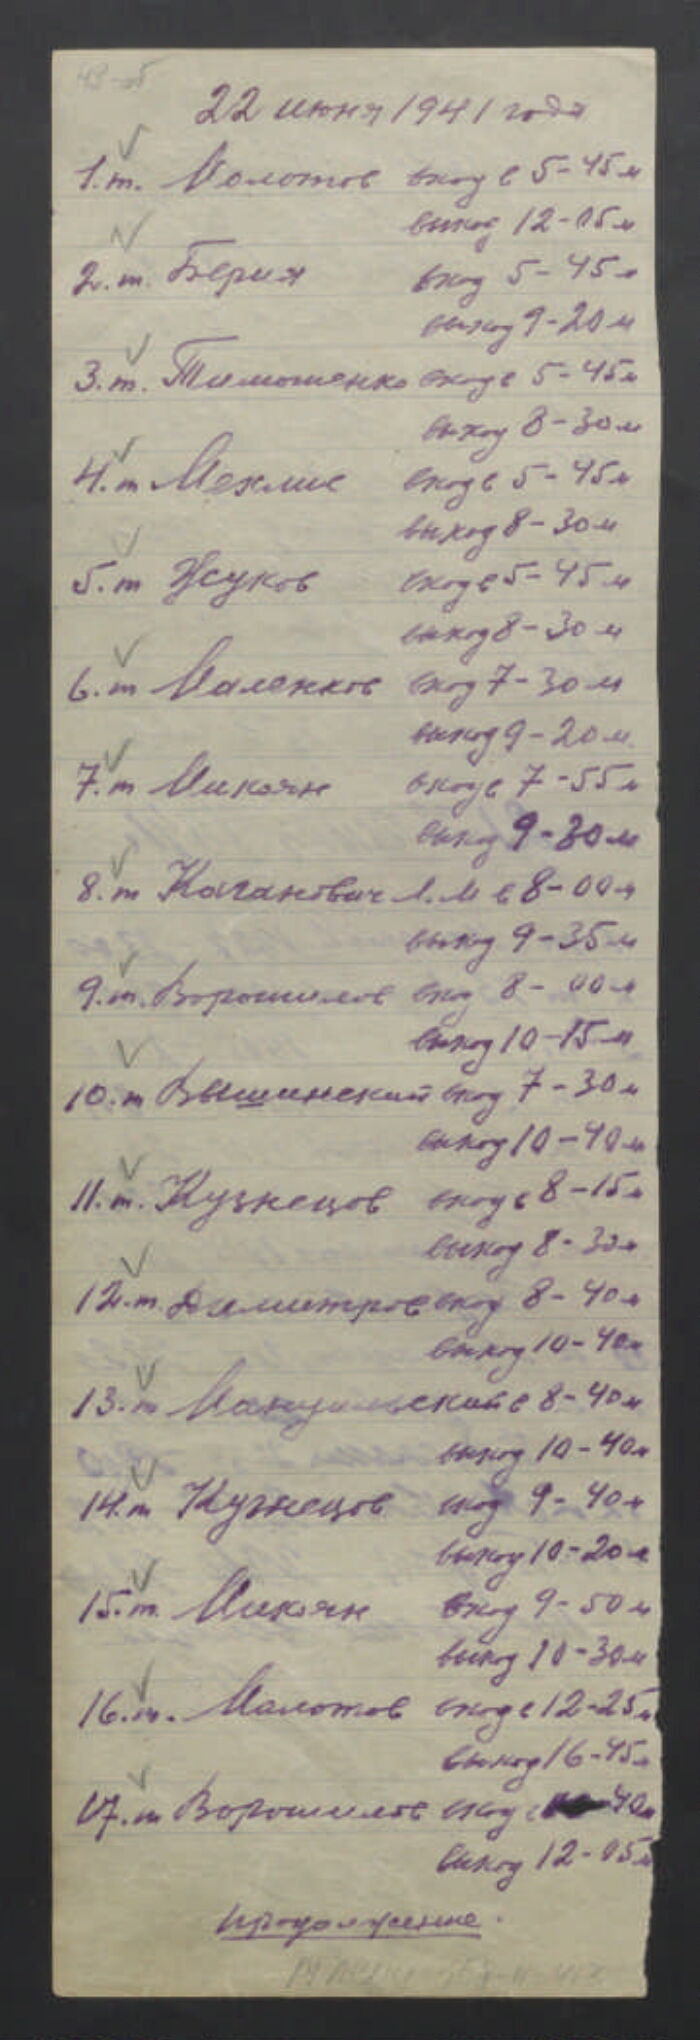 22 июня 1941 года
1. т. Молотов вход в 5-45 м
выход 12-05 м
2. т. Берия вход 5-45 м
выход 9-20 м
3. т. Тимошенко вход в 5-45 м
выход 8-30 м
4. т Мехлис вход в 5-45 м
выход 8-30 м
5. т Жуков вход в 5-45 м
выход 8-30 м
6. т Маленков вход 7-30 м
выход 9-20 м
7. т Микоян вход в 7-55 м
выход 9-30 м
8. т Каганович Л. М в 8-00 м
выход 9-35 м
9. т. Ворошилов вход 8-00 м
выход 10-15 м
10. т Вышинский вход 7-30 м
выход 10-40 м
11. т. Кузнецов вход в 8-15 м
выход 8-30 м
12. т. Димитров вход 8-40 м
выход 10-40 м
13. т Мануильский в 8-40 м
выход 10-40 м
14. т Кузнецов вход 9-40 м
выход 10-20 м
15. т. Микоян вход 9-50 м
выход 10-30 м
16. т. Молотов вход в 12-25 м
выход 16-45 м
17. т Ворошилов вход в -40 м
выход 12-05 м
продолжение.